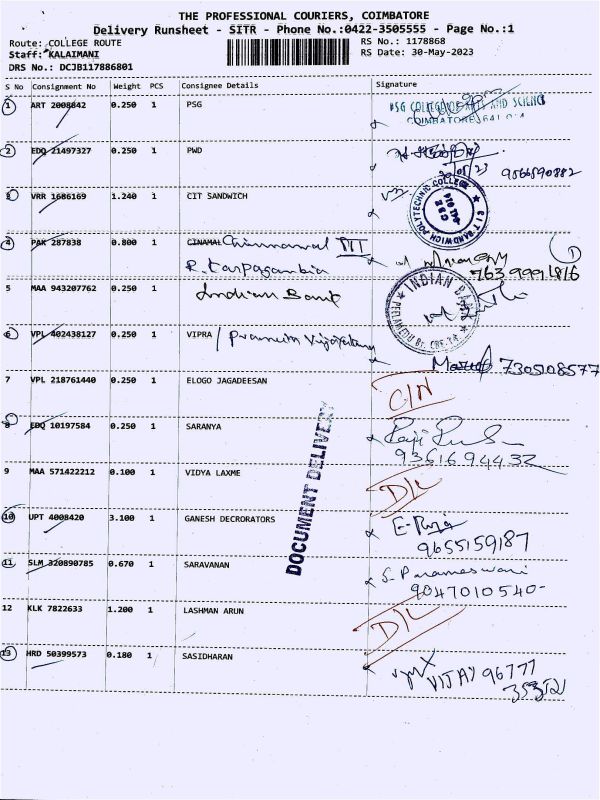 THE PROFESSIONAL COURIERS, COIMBATORE
Delivery Runsheet - SITR - Phone No.:0422-3505555 - Page No.:1
Route: COLLEGE ROUTE RS No.: 1178868
Staff: KALAIMANI RS Date: 30-May-2023
DRS No.: DCJB117886801
S No Consignment No Weight PCS Consignee Details Signature
1 ART 2008842 0.250 1 PSG PSG COLLEGE OF ARTS AND SCIENCE
COIMBATORE-641 014
2 EDQ 21497327 0.250 1 PWD
9566590882
3 VRR 1686169 1.240 1 CIT SANDWICH C.I.T SANDWICH POLYTECHNIC COLLEGE
4 PAK 287838 0.800 1 CINAMAL Chinnamal III
R. Karpagambia 7639991816
5 MAA 943207762 0.250 1 Indian Bank INDIAN BANK
PEELAMEDU Br. CBE.TR.
6 VPL 402438127 0.250 1 VIPRA / 7305108577
7 VPL 218761440 0.250 1 ELOGO JAGADEESAN
8 EDQ 10197584 0.250 1 SARANYA
9361694432
9 MAA 571422212 0.100 1 VIDYA LAXME D/L
10 UPT 4008420 3.100 1 GANESH DECRORATORS E. Raja
9655159187
11 SLM 320890785 0.670 1 SARAVANAN S. Parameswari
9047010540-
12 KLK 7822633 1.200 1 LASHMAN ARUN D/L
13 HRD 50399573 0.180 1 SASIDHARAN VIJAY 96777
DOCUMENT DELIVERY